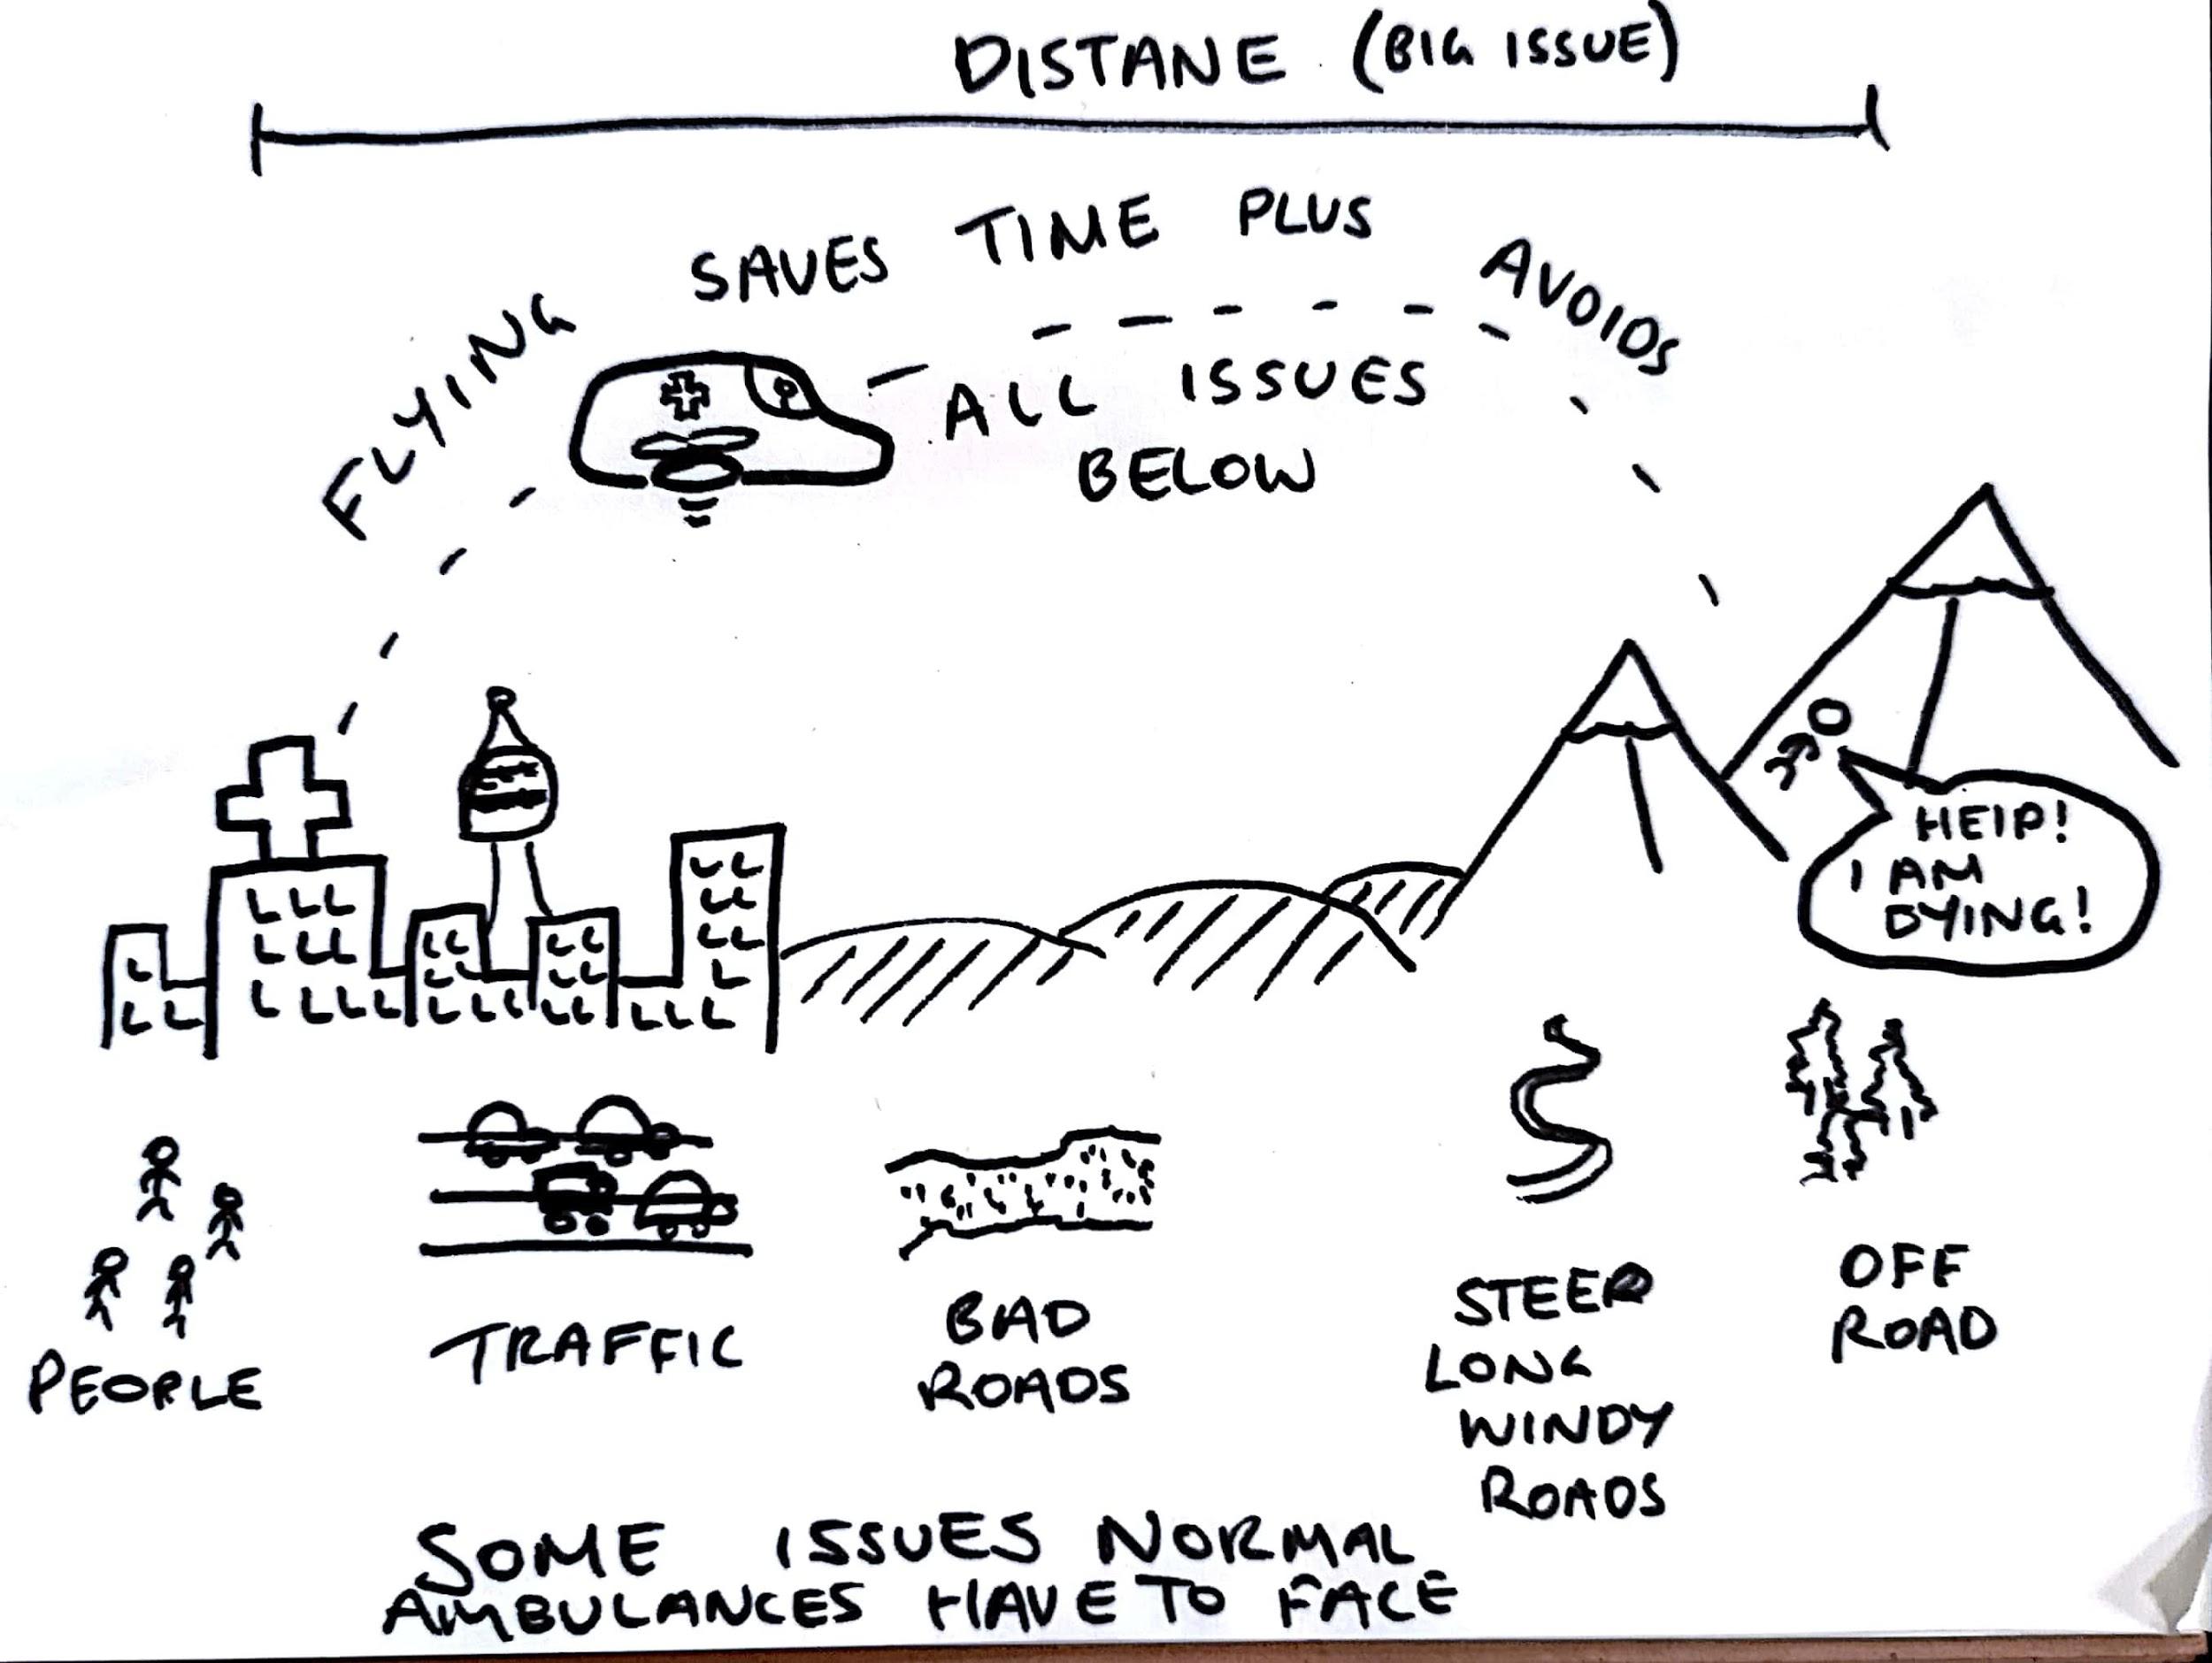 DISTANE (BIG ISSUE)
FLYING SAVES TIME PLUS AVOIDS
ALL ISSUES
BELOW
HElP!
I AM
DYING!
PEOPLE
TRAFFIC
BAD
ROADS
STEEP
LONG
WINDY
ROADS
OFF
ROAD
SOME ISSUES NORMAL
AMBULANCES HAVE TO FACE